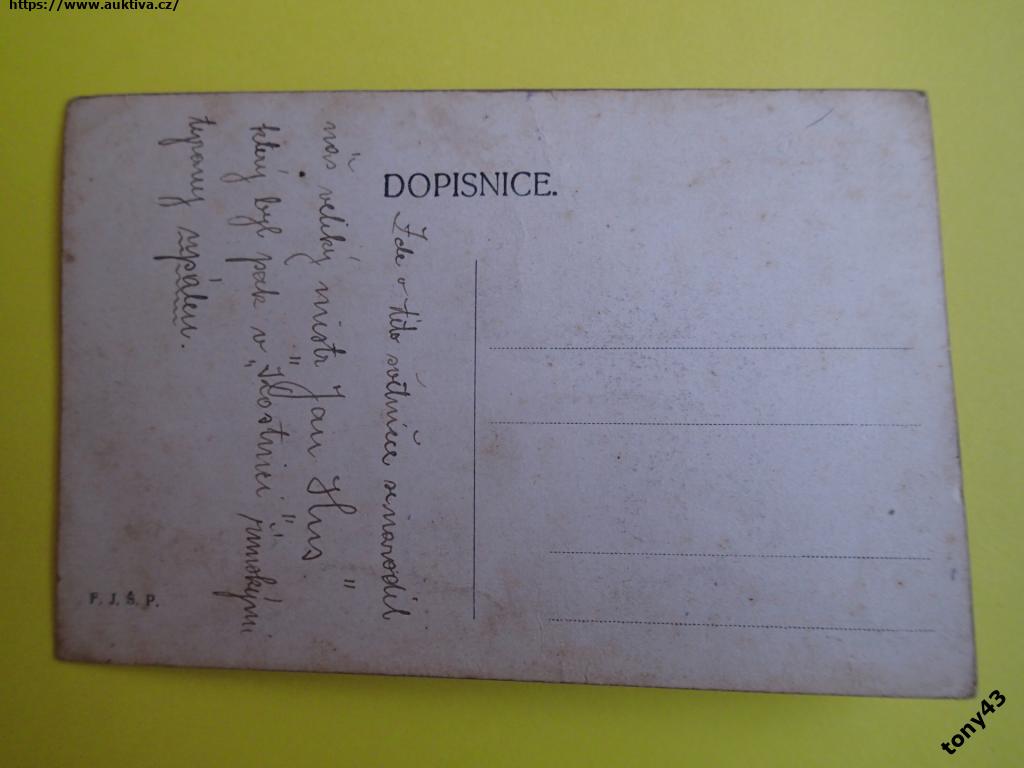 https://www.auktiva.cz/
DOPISNICE.
Zde v této světnice se narodil
náš veliký mistr "Jan Hus"
který byl pak v „Kostnici" římskými
tyrany upálen.
F. J. Š. P.
tony43